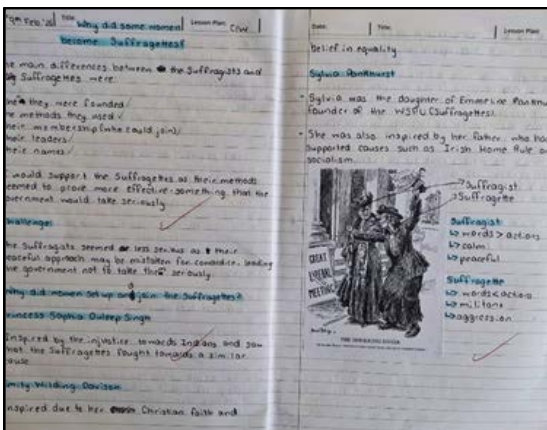 9th Feb '26 Title: Why did some women Lesson Plan: C/W
become Suffragettes?
e main differences between the Suffragists and
Suffragettes were:
they were founded
e methods they used
heir membership (who could join)
heir leaders
heir names
would support the Suffragettes as their methods
eemed to prove more effective - something that the
overnment would take seriously
hallenge:
he Suffragists seemed less serious as their
eaceful approach may be mistaken for cowardice, leading
he government not to take them seriously
Why did women set up and join the Suffragettes?
rincess Sophia Duleep Singh
Inspired by the injustice towards Indians and saw
hat the Suffragettes fought towards a similar
ause
mily Wilding Davison
nspired due to her Christian faith and
Date: Title: Lesson Plan:
belief in equality
Sylvia Pankhurst
• Sylvia was the daughter of Emmeline Pankhu
founder of the WSPU (Suffragettes).
• She was also inspired by her father, who had
supported causes such as Irish Home Rule a
socialism
→ Suffragist
→ Suffragette
GREAT
LIBERAL
MEETING
THE SHRIEKING SISTER
Suffragist
↳ words > actions
↳ calm
↳ peaceful
Suffragette
↳ words < actions
↳ militant
↳ aggression